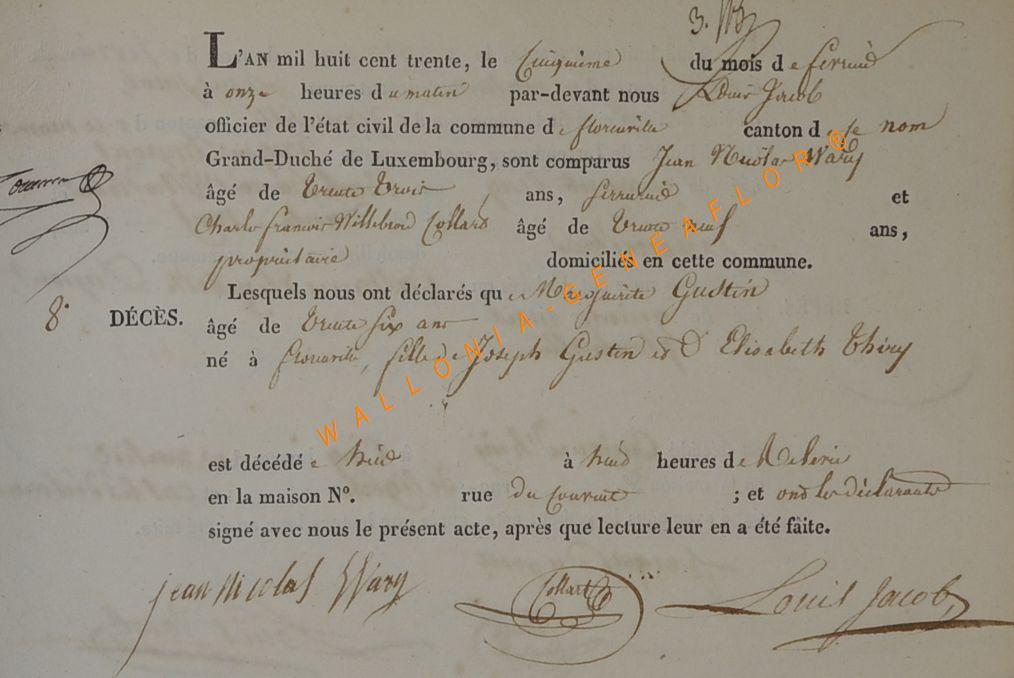 L'AN mil huit cent trente, le Cinquième du mois de février
à onze heures du matin par-devant nous Louis Jacob
officier de l'état civil de la commune de florenville canton de ce nom
Grand-Duché de Luxembourg, sont comparus Jean Nicolas Wary
âgé de trente trois ans, serrurier et
Charles françois Willebrod Collard âgé de trente neuf ans,
propriétaire domiciliés en cette commune.
Lesquels nous ont déclarés que Marguerite Gustin
8e DÉCÈS. âgé de trente six ans
né à florenville, fille de Joseph Gustin et d'Elisabeth Thiry
WALLONIA-GENEAFLOR®
est décédée hier à huit heures de Relevée
en la maison N°. rue du Couvent ; et ont les déclarants
signé avec nous le présent acte, après que lecture leur en a été faite.
jean Nicolas Wary Collart Louis Jacob